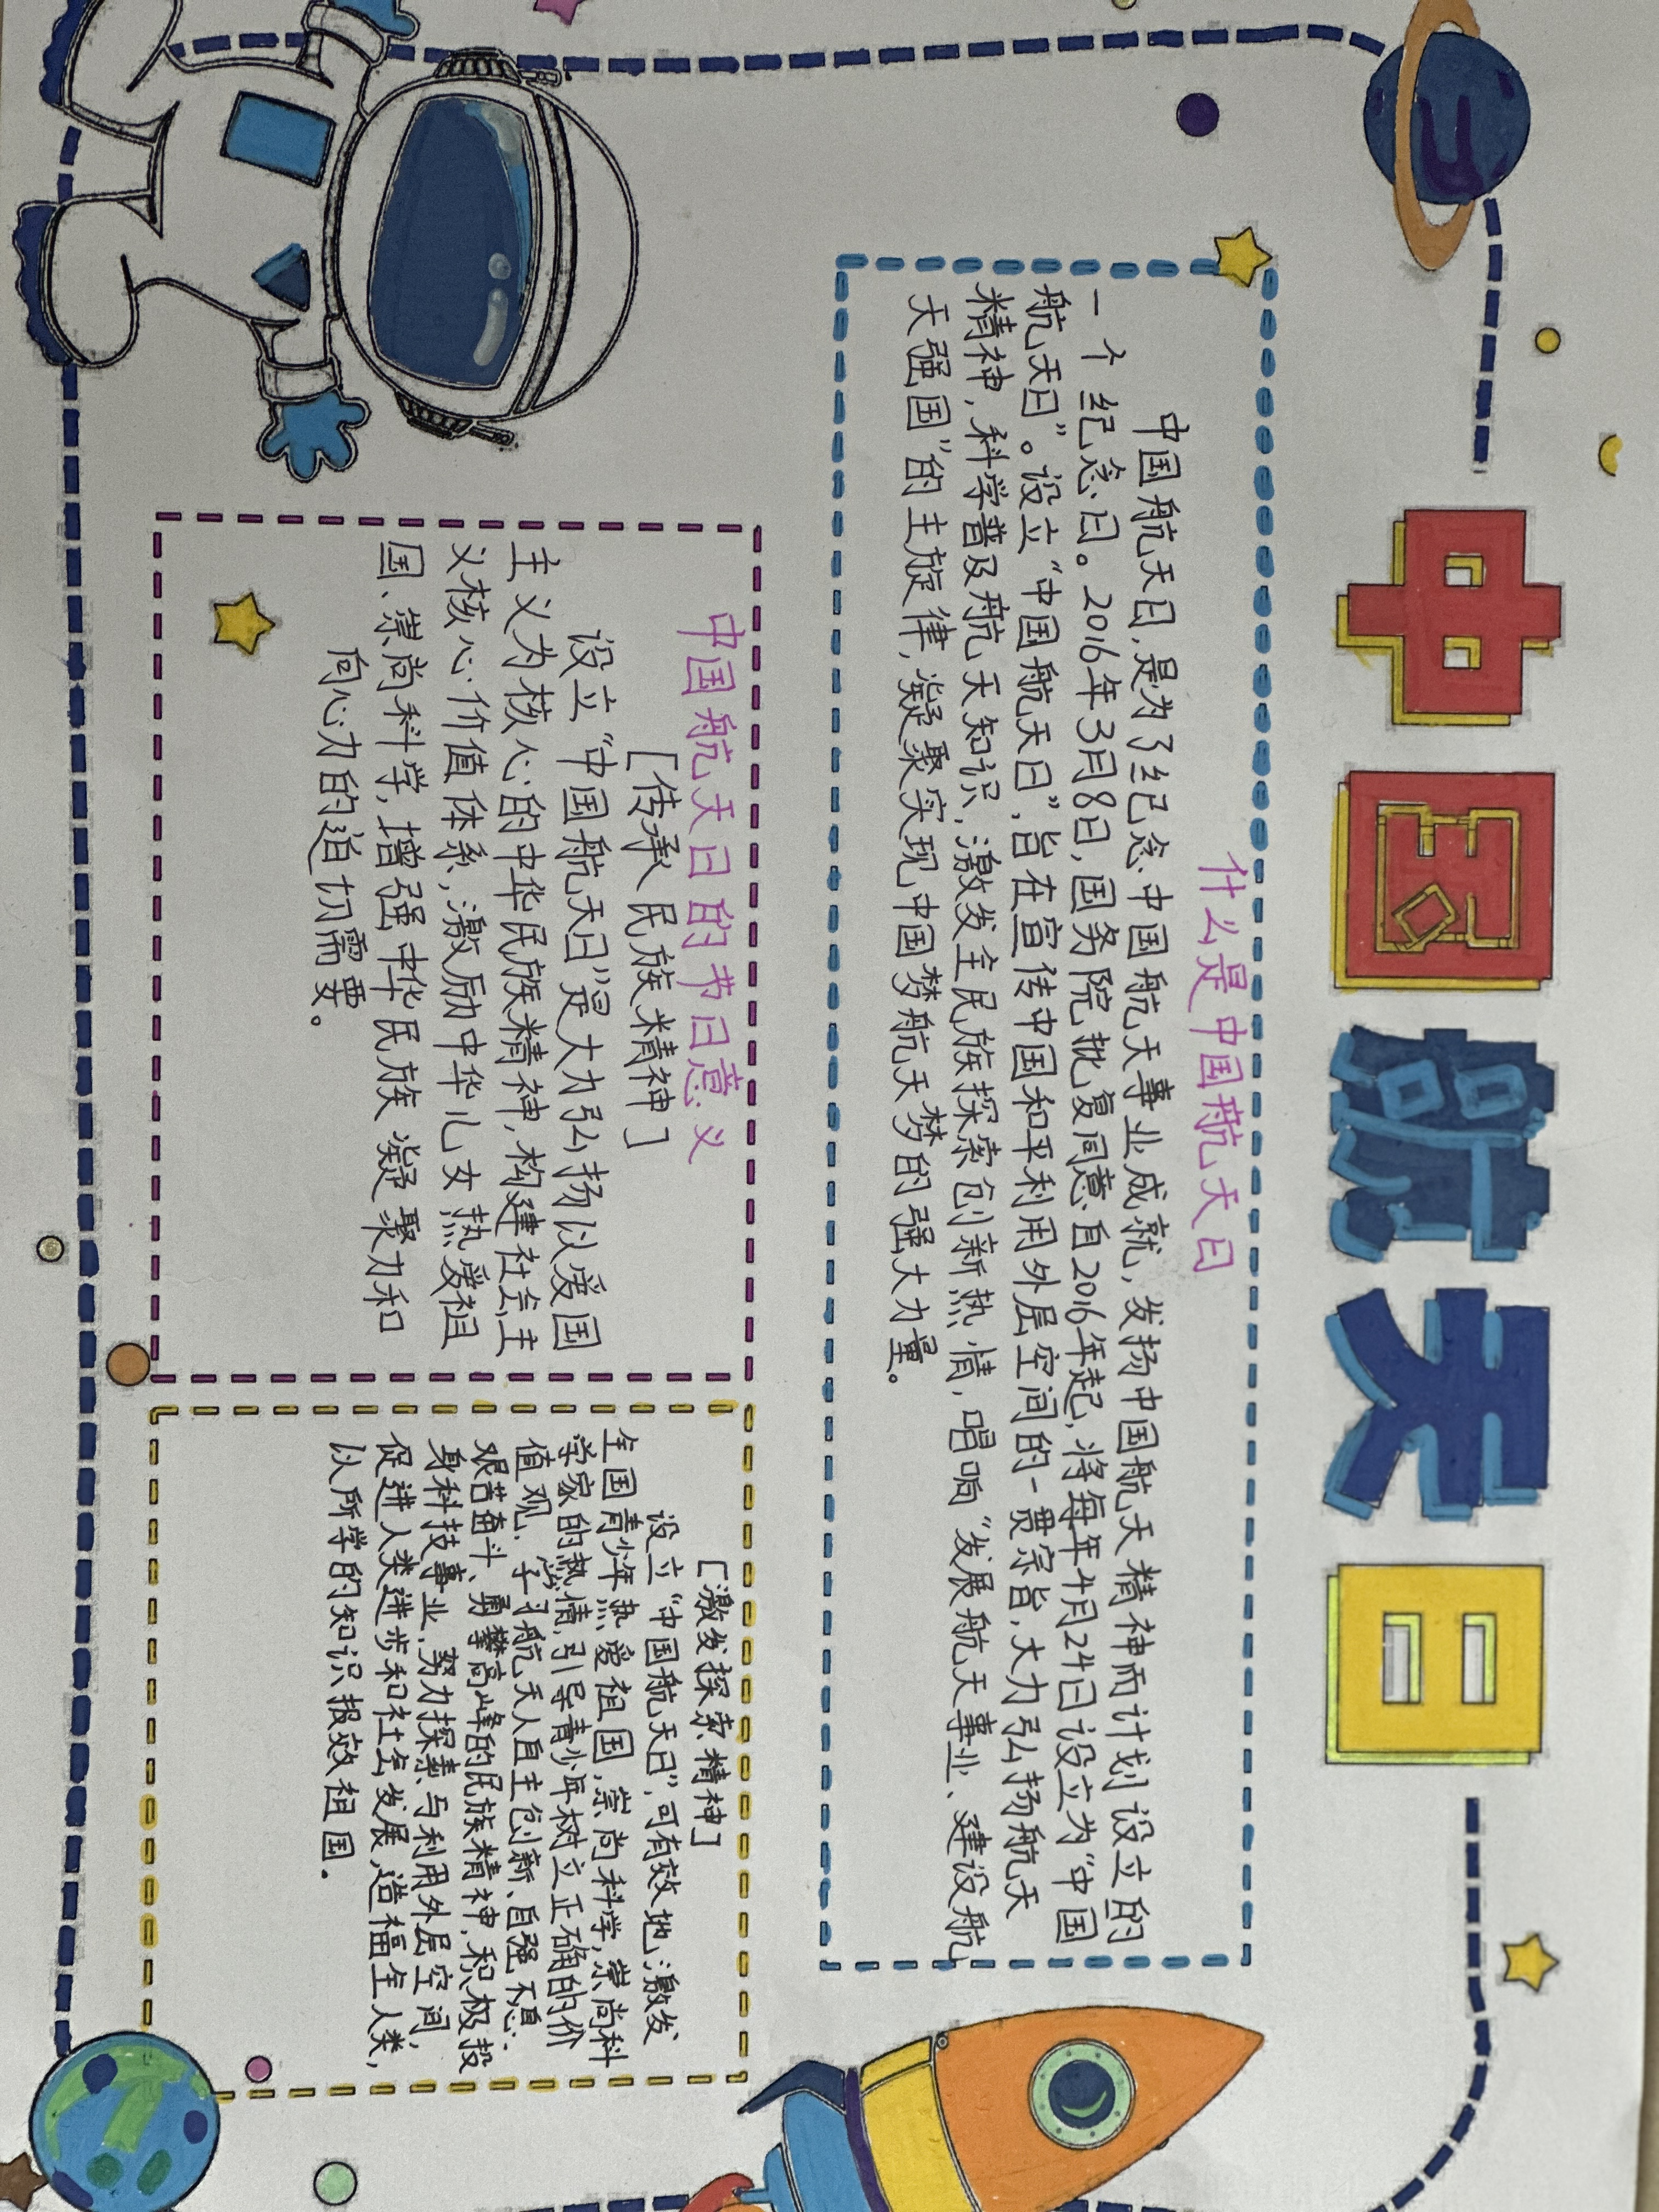 中国航天日
什么是中国航天日
中国航天日,是为了纪念中国航天事业成就,发扬中国航天精神而计划设立的
一个纪念日。2016年3月8日,国务院批复同意自2016年起,将每年4月24日设立为“中国
航天日”。设立“中国航天日”,旨在宣传中国和平利用外层空间的一贯宗旨,大力弘扬航天
精神,科学普及航天知识,激发全民族探索创新热情,唱响“发展航天事业、建设航
天强国”的主旋律,凝聚实现中国梦航天梦的强大力量。
中国航天日的节日意义
[传承民族精神]
设立“中国航天日”是大力弘扬以爱国
主义为核心的中华民族精神,构建社会主
义核心价值体系,激励中华儿女热爱祖
国、崇尚科学,增强中华民族凝聚力和
向心力的迫切需要。
[激发探索精神]
设立“中国航天日”,可有效地激发
全国青少年热爱祖国,崇尚科学,崇尚科
学家的热情,引导青少年树立正确的价
值观,学习航天人自主创新、自强不息、
艰苦奋斗、勇攀高峰的民族精神,积极投
身科技事业,努力探索与利用外层空间,
促进人类进步和社会发展,造福全人类,
以所学的知识报效祖国.